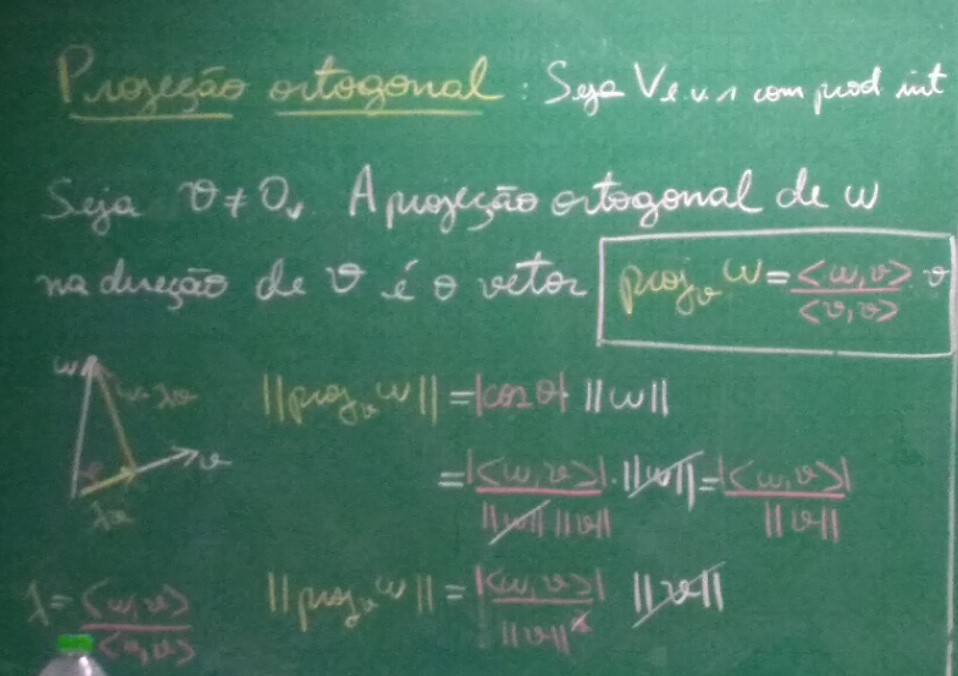 Projeção ortogonal : Seja V e.v. com prod int
Seja v ≠ 0, A projeção ortogonal de w
na direção de v é o vetor proj_v w = <w,v>/<v,v> . v
w
w-λv
v
λv
||proj_v w|| = |cos θ| ||w||
= |<w,v>|/(||w|| ||v||) . ||w|| = |<w,v>|/||v||
λ = <w,v>/<v,v>
||proj_v w|| = |<w,v>|/||v||² ||v||